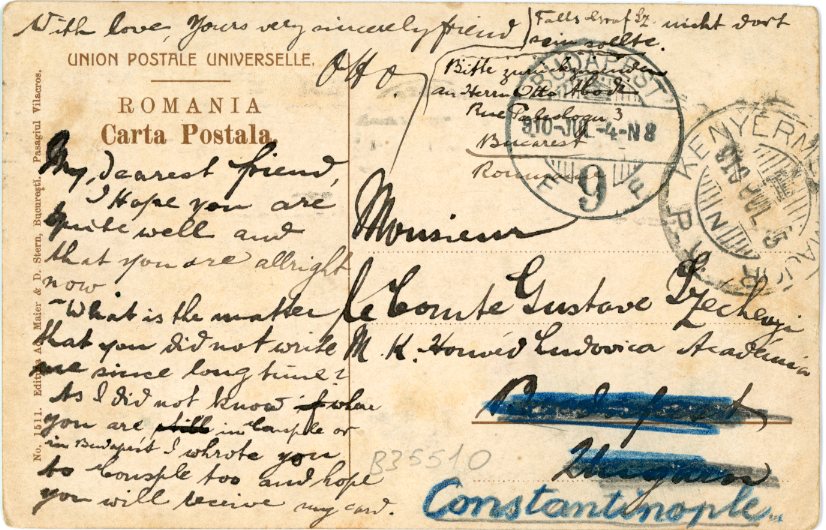 With love, Yours very sincerely friend
Otto.
Falls Graf Sz. nicht dort
sein sollte.
Bitte zurück
an Herrn Otto
Rue 3
Bucarest
UNION POSTALE UNIVERSELLE.
ROMANIA
Carta Postala
My dearest friend,
I Hope you are
quite well and
that you are allright
now
What is the matter
that you did not write
me since long time?
As I did not know where
you are, still in Conple or
in Budapest, I whrote you
to Consple too and hope
you will receive my card.
Monsieur
le Comte Gustave Szechenyi
M. K. Honvéd Ludovica Académia
Budapest
Constantinople
BUDAPEST
910-JUL-4-N8
9
KENYÉRMEZŐ
B35510
No. 1511. Editura Ad. Maier & D. Stern, Bucureşti, Pasagiul Vilacros.